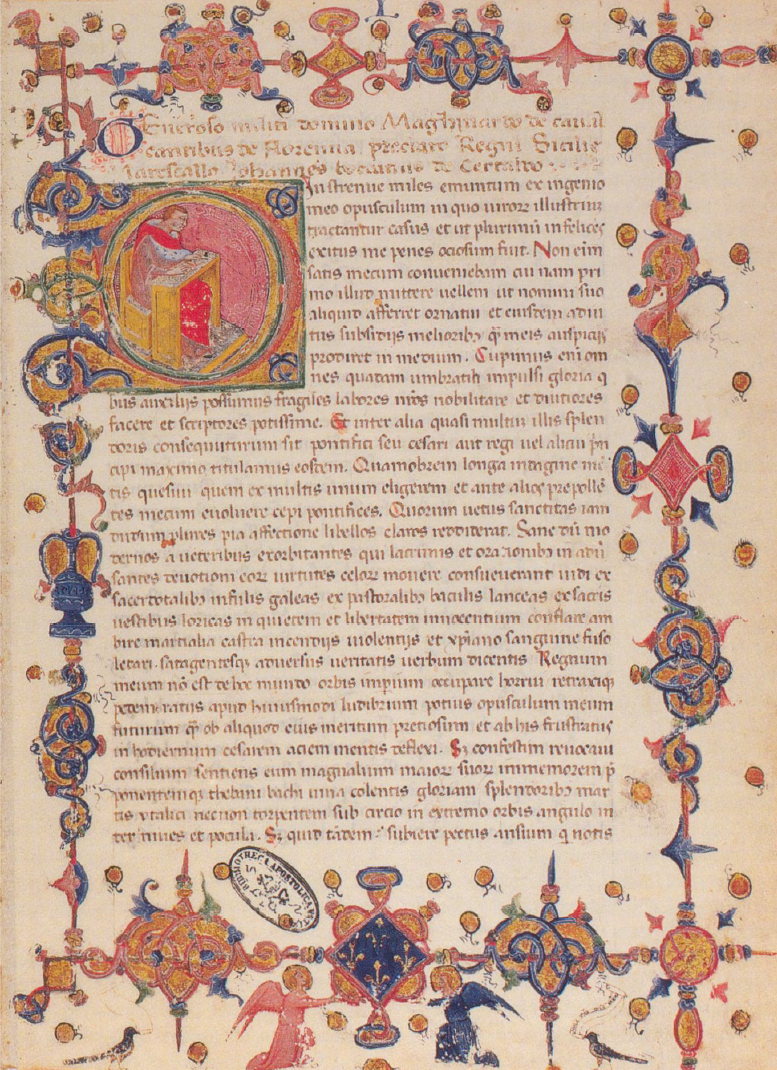 Generoso militi domino Maghinardo de caval
cantibus de florentia preclaro Regni Sicilie
Johannes boccatius de Certaldo
Diu strenue miles emunctum ex ingenio
meo opusculum in quo virorum illustrium
tractantur casus et ut plurimum infelices
exitus me penes ociosum fuit. Non eim
satis mecum conveniebam cui nam pri
mo illud mittere vellem ut nomini suo
aliquid afferret ornatum et eiusdem adiu
tus subsidiis melioribus quam meis auspiciis
prodiret in medium. Cupimus enim om
nes quadam umbratili impulsi gloria q
bus auxiliis possumus fragiles labores nros nobilitare et diutiores
facere et scriptores potissime. Et inter alia quasi multum illis splen
doris consequuturum sit pontifici seu cesari aut regi vel alicui prin
cipi maximo titulamus eosdem. Quamobrem longa indagine men
tis quesivi quem ex multis unum eligerem et ante alios prepollen
tes mecum evoluere cepi pontifices. Quorum vetus sanctitas iam
dudum plures pia affectione libellos claros reddiderat. Sane dum mo
dernos a veteribus exorbitantes qui lacrimis et orationibus in adiu
santes devotioni eorum virtutes celorum movere consueverant vidi ex
sacerdotalibus infulis galeas ex pastoralibus baculis lanceas ex sacris
vestibus loricas in quietem et libertatem innocentium conflare am
bire martialia castra incendiis violentiis et xpiano sanguine fuso
letari. satagentesque adversus veritatis verbum dicentis Regnum
meum non est de hoc mundo orbis imperium occupare horrui retraxique
pedem ratus apud huiusmodi ludibrium potius opusculum meum
futurum quam ob aliquod eius meritum preciosum et ab his frustratus
in hodiernum cesarem aciem mentis deflexi. Sz confestim revocavi
consilium sentiens eum magnalium maiorum suorum immemorem p
ponentemque thebani bachi vina colentis gloriam splendoribus mar
tis ytalici nec non torpentem sub circio in extremo orbis angulo in
ter nives et pocula. Sz quid tandem subiere pectus ansium q notis